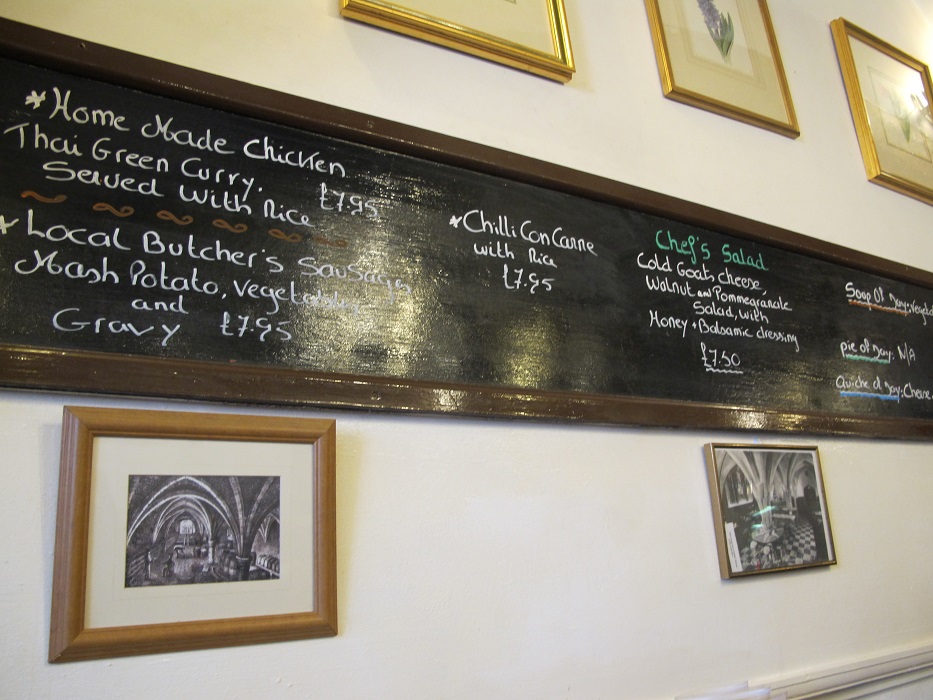 *Home Made Chicken
Thai Green Curry.
Served with Rice £7.95
*Local Butcher's Sausages
Mash Potato, Vegetables,
and
Gravy £7.95
*Chilli Con Carne
with Rice
£7.95
Chef's Salad
Cold Goats cheese,
Walnut and Pommegranate
Salad, with
Honey + Balsamic dressing
£7.50
Soop Of Day:
pie of Day: N/A
Quiche of Day: